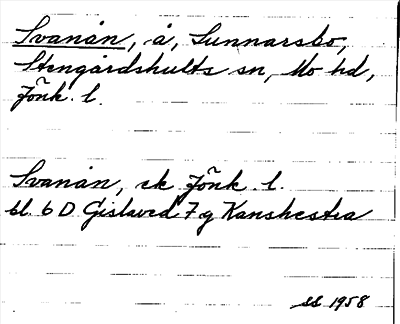 Svanån, å, Sunnarsbo,
Stengårdshults sn, Mo hd,
Jönk. l.
Svanån, ek Jönk. l.
bl. 6 D Gislaved 7 g Kanshestra
SS 1958